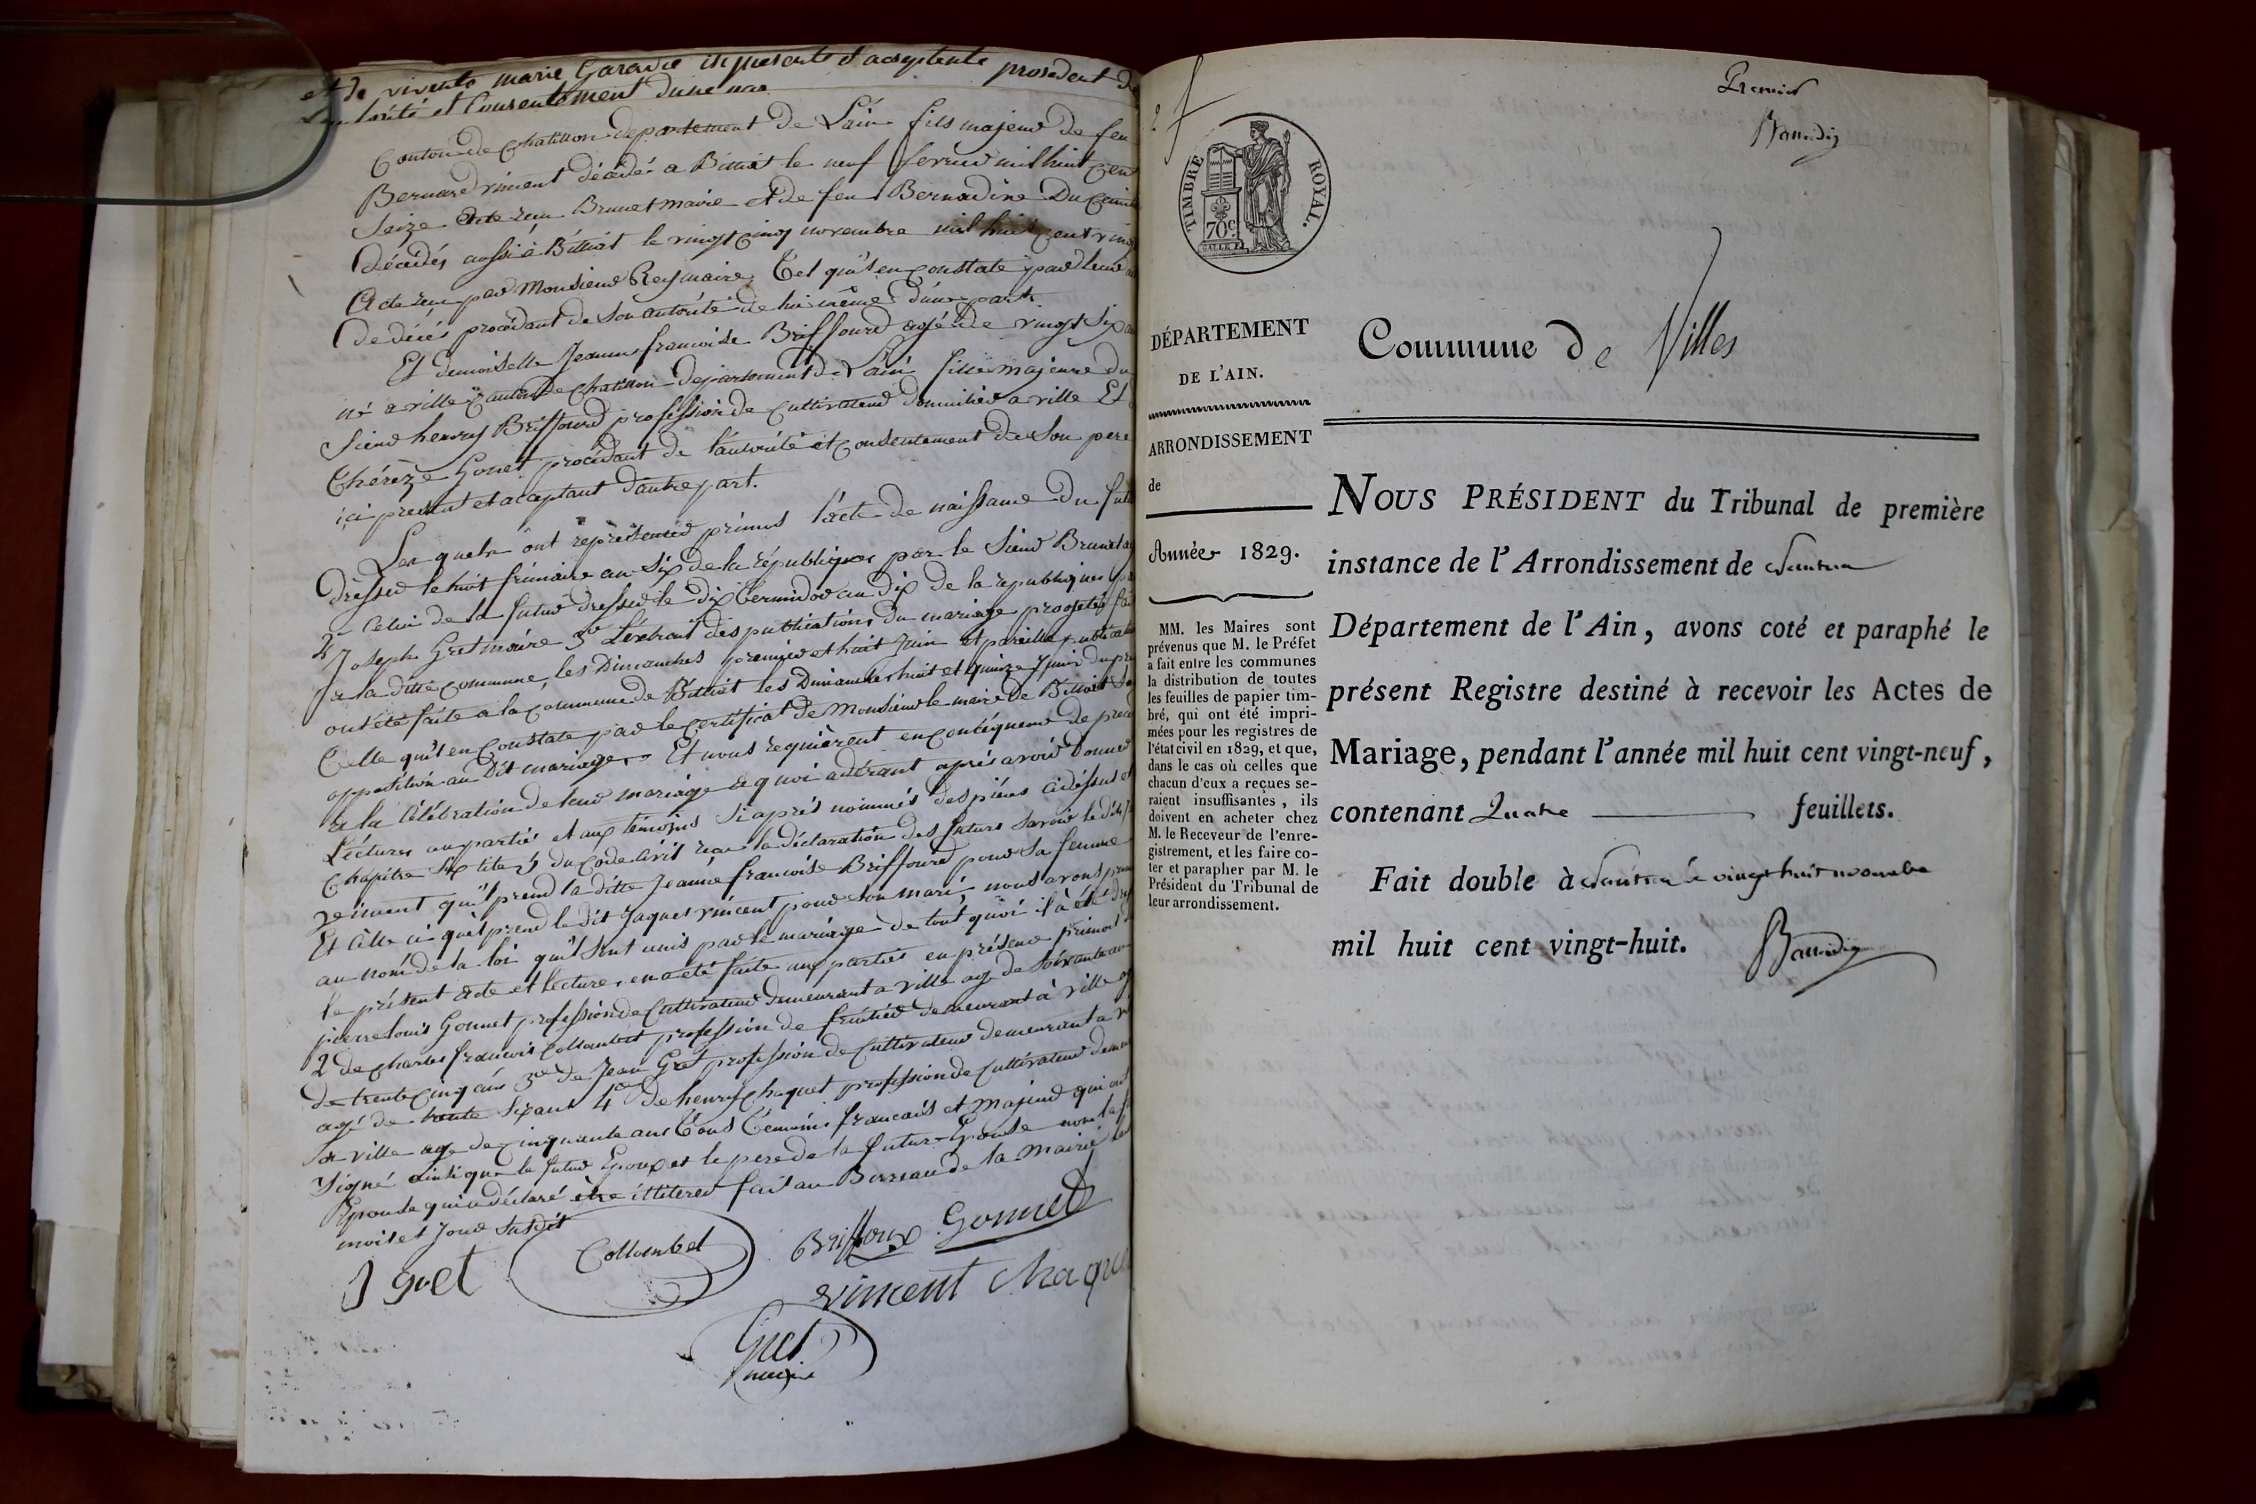 et de vivente marie Garavie ici presente et aceptente prosedent de
Lautorité et Consentement dune
Canton de Chatillon departement de Lain fils majeur de feu
Bernard vincent décédé a Billiat le neuf fevrier mil huit cent
Seize acte reçu Brunet maire et de feu Bernardine Du
décédés aussi à Billiat le vingt cinq novembre mil huit cent vingt
Acte reçu par Monsieur Rey maire, Tel qu'il en constate par leur
de décés procédant de Son autorité de lui même d'une part.
Et demoiselle Jeanne francoise Briffourd agée de vingt Six an
né a ville Canton de Chatillon departement de Lain fille majeure du
Sieur henry Briffourd profession de Cultivateur domicilié a ville Et
Thérèze Gonet procédant de l'autorité et Consentement de Son pere
ici present et aceptant d'autre part.
Les quels ont représenté primus l'acte de naissance du futu
dressé le huit frimaire an Six de la république par le Sieur Brunet
2º Celui de la future dressé le dix Termidor an dix de la république
Joseph Gret maire 3º L'extrait des publications du mariage projeté
a la ditte commune les Dimanches premier et huit Juin et pareille publication
ont été faite a la commune de Billiat les Dimanches huit et quinze Juin
Telle qu'il en Constate par le Certificat de Monsieur le maire de Billiat
opposition au dit mariage. Et nous requièrent en conséquence de
a la Célébration de leur mariage a quoi adérant après avoir donné
Lecture au parties et aux témoins Si après nommés des pièces cidessus et
Chapitre Six titre 5 du Code Civil reçu la déclaration des futurs savoir le dit
vincent qu'il prend la ditte Jeanne francoise Briffourd pour Sa femme
Et Celle ci qu'el prend le dit Jaques vincent pour son mari, nous avons
au nom de la loi qu'il Sont unis par le mariage de tout quoi il a été
le présent acte et lecture en a été faite aux parties en présence primo
pierre louis Gonnet profession de Cultivateur demeurant a ville agé de Soixante
2 de Charles francois Collombet profession de fruitier demeurant à ville
de trente cinq ans 3me de Jean Gret profession de Cultivateur demeurant a
agé de trante Six ans 4º de henry Chaquet profession de Cultivateur
a ville agé de Cinquante ans Tous Temoins francais et Majeur qui ont
Signé ainsi que le futur Epoux et le pere de la future Epouse non la
Epouse qui a déclaré être illiterer fait au Bureau de la Mairie les
mois et Jour Susdit
J gret Collombet Briffoux Gonnet
vincent Chaque
Gret
maire
Premier
TIMBRE ROYAL.
70c.
DÉPARTEMENT
DE L'AIN.
ARRONDISSEMENT
de
Année 1829.
MM. les Maires sont
prévenus que M. le Préfet
a fait entre les communes
la distribution de toutes
les feuilles de papier tim-
bré, qui ont été impri-
mées pour les registres de
l'état civil en 1829, et que,
dans le cas où celles que
chacun d'eux a reçues se-
raient insuffisantes, ils
doivent en acheter chez
M. le Receveur de l'enre-
gistrement, et les faire co-
ter et parapher par M. le
Président du Tribunal de
leur arrondissement.
Commune de Villes
NOUS PRÉSIDENT du Tribunal de première
instance de l'Arrondissement de Nantua
Département de l'Ain, avons coté et paraphé le
présent Registre destiné à recevoir les Actes de
Mariage, pendant l'année mil huit cent vingt-neuf,
contenant Quatre feuillets.
Fait double à Nantua le vingt huit novembre
mil huit cent vingt-huit.